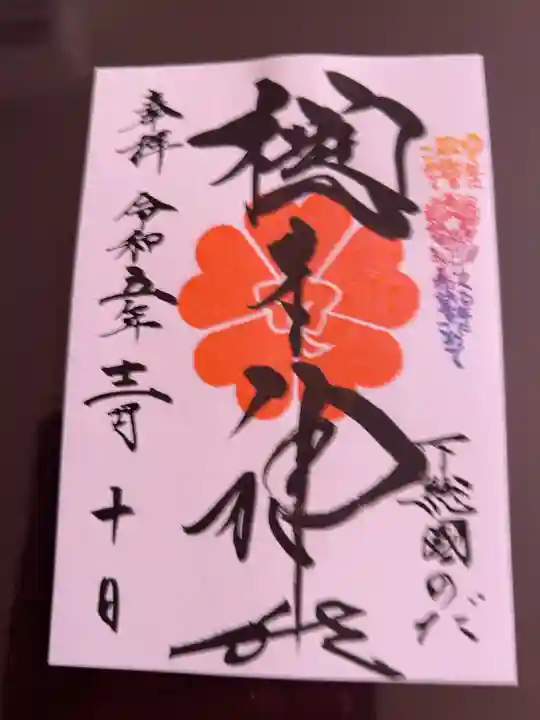 下総國のだ
櫻木神社
奉拝 令和五年 十二月 十日